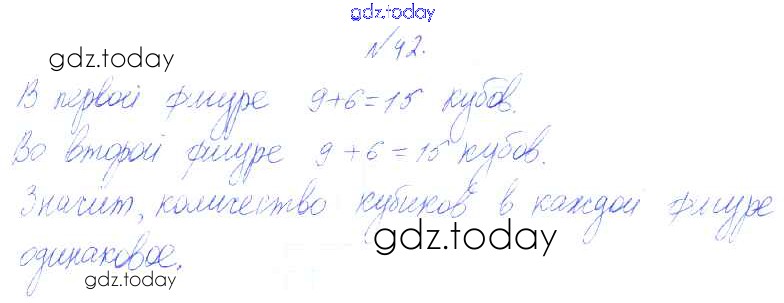 gdz.today
№42.
gdz.today
В первой фигуре 9+6=15 кубов.
Во второй фигуре 9+6=15 кубов.
Значит, количество кубиков в каждой фигуре
gdz.today
одинаковое.
gdz.today